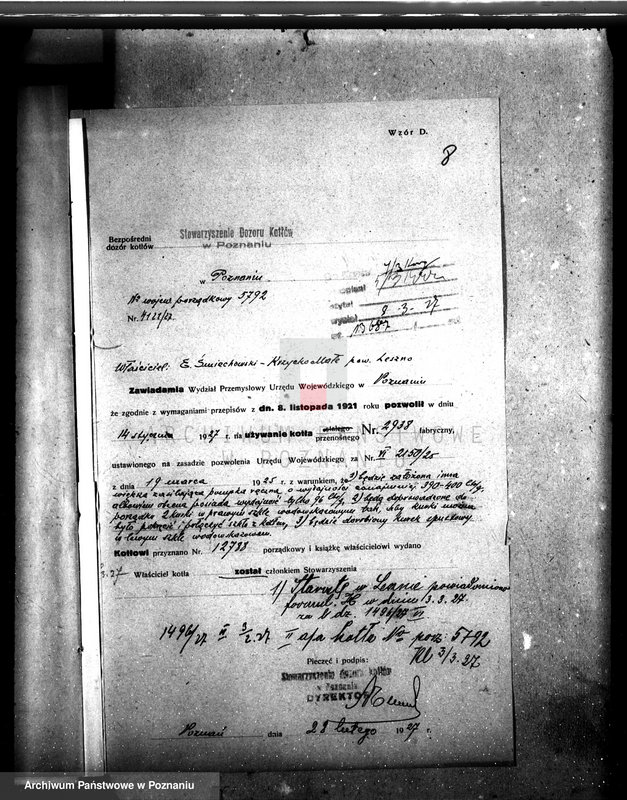 Wzór D.
8
Bezpośredni
dozór kotłów
Stowarzyszenie Dozoru Kotłów
w Poznaniu
w Poznaniu
No wojew. porządkowy 5792
Nr.
8-3-27
Właściciel: E. Śmiechowski - Krzycko Małe pow. Leszno
Zawiadamia Wydział Przemysłowy Urzędu Wojewódzkiego w Poznaniu
że zgodnie z wymaganiami przepisów z dn. 8. listopada 1921 roku pozwolił w dniu
14 stycznia 1927 r. na używanie kotła stałego przenośnego Nr. 2938 fabryczny,
ustanowionego na zasadzie pozwolenia Urzędu Wojewódzkiego za Nr. VI 2150/25
z dnia 19 marca 1925 r. z warunkiem, że 1) będzie założona inna
większa zasilająca pompka ręczna, o wydajności conajmniej 390-400
albowiem obecna posiada wydajność tylko 96 2) będą doprowadzone do
porządku 2 kurki w prawym szkle wodowskazowem tak, aby kurki można
było połączyć szkło z kotłem, 3) będzie dorobiony kurek spustowy
w lewym szkle wodowskazowem.
Kotłowi przyznano Nr. 12788 porządkowy i książkę właścicielowi wydano
3.27 Właściciel kotła został członkiem Stowarzyszenia
1) Starostę w Lesznie powiadomiono
formul. H w dniu 3.3.27.
za L. dz. 1496/27 VI
1496/27 II 3/3.27 II apa kotła No porz. 5792
3/3.27
Pieczęć i podpis:
Stowarzyszenie dozoru kotłów
w Poznaniu
DYREKTOR
Poznań dnia 28 lutego 1927 r.
ARCHIWUM PAŃSTWOWE
W POZNANIU
Archiwum Państwowe w Poznaniu